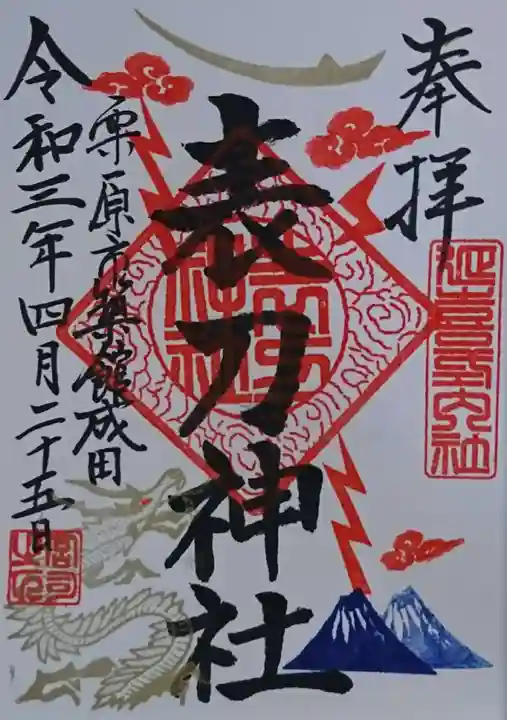 奉拝
延喜式内社
表刀神社
栗原市築館成田
令和三年四月二十五日